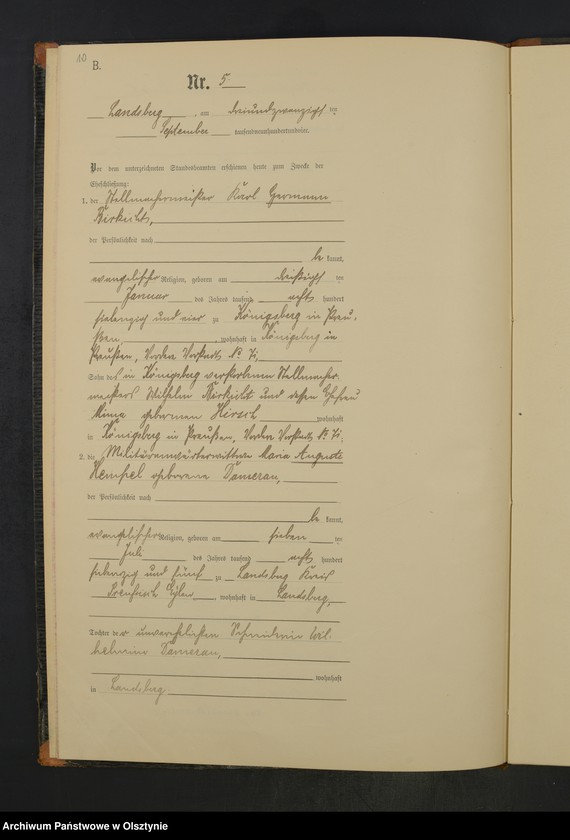 10
B.
Nr. 5.
Landsberg, am dreiundzwanzigsten
September tausendneunhundertundvier.
Vor dem unterzeichneten Standesbeamten erschienen heute zum Zwecke der
Eheschließung:
1. der Stellmachermeister Karl Hermann
Birkicht,
der Persönlichkeit nach
be kannt,
evangelischer Religion, geboren am dreißigsten
Januar des Jahres tausend acht hundert
siebenzig und vier zu Königsberg in Preu-
ßen, wohnhaft in Königsberg in
Preußen, Vordere Vorstadt No. 71,
Sohn des in Königsberg verstorbenen Stellmacher-
meisters Wilhelm Birkicht und dessen Ehefrau
Minna geborenen Hirsch wohnhaft
in Königsberg in Preußen, Vordere Vorstadt No. 71.
2. die Militäranwärterwittwe Maria Auguste
Hempel geborene Dameran,
der Persönlichkeit nach
be kannt,
evangelischer Religion, geboren am sieben
Juli des Jahres tausend acht hundert
siebenzig und fünf zu Landsberg Kreis
Preußisch Eylau, wohnhaft in Landsberg,
Tochter der unverehelichten Schneiderin Wil-
helmine Dameran,
wohnhaft
in Landsberg.
Archiwum Państwowe w Olsztynie